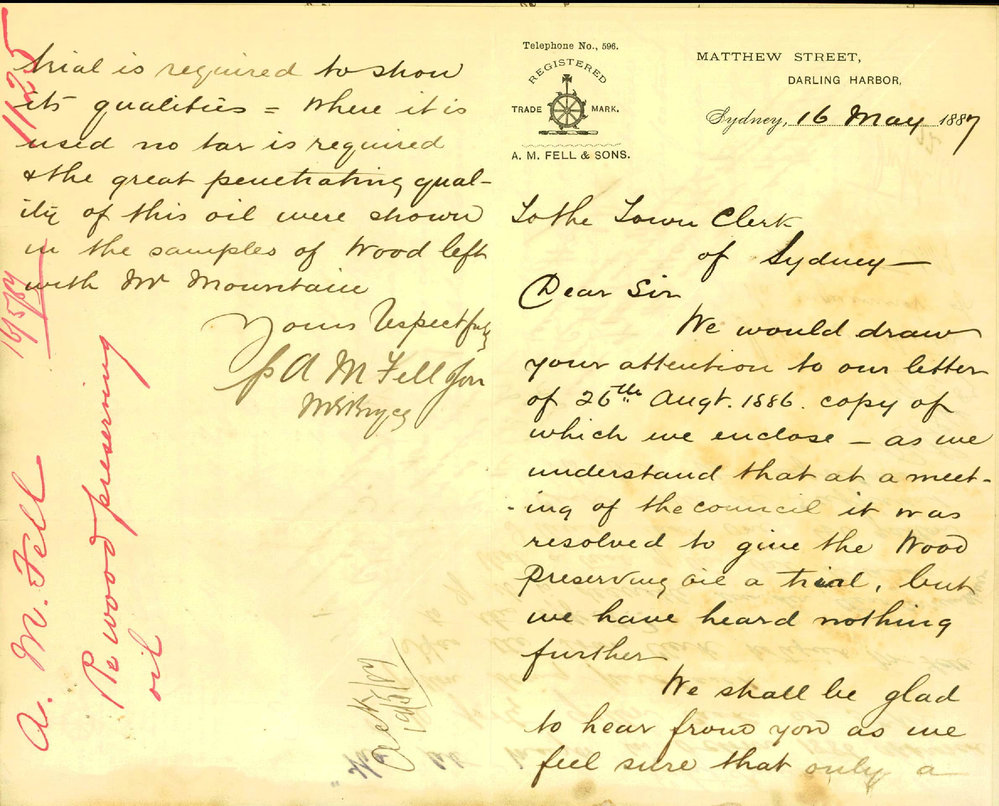 Telephone No., 596.
REGISTERED
TRADE MARK.
A. M. FELL & SONS.
MATTHEW STREET,
DARLING HARBOR,
Sydney, 16 May 1887
To the Town Clerk
of Sydney —
Dear Sir
We would draw
your attention to our letter
of 26th Augt. 1886. copy of
which we enclose — as we
understand that at a meet-
-ing of the council it was
resolved to give the Wood
preserving oil a trial, but
we have heard nothing
further
We shall be glad
to hear from you as we
feel sure that only a
trial is required to show
its qualities = Where it is
used no tar is required
& the great penetrating qual-
ity of this oil were shown
in the samples of Wood left
with Mr Mountain
Yours Respectfully
p A M Fell & Son
1125
A. M. Fell
Re wood preserving
oil
Ack